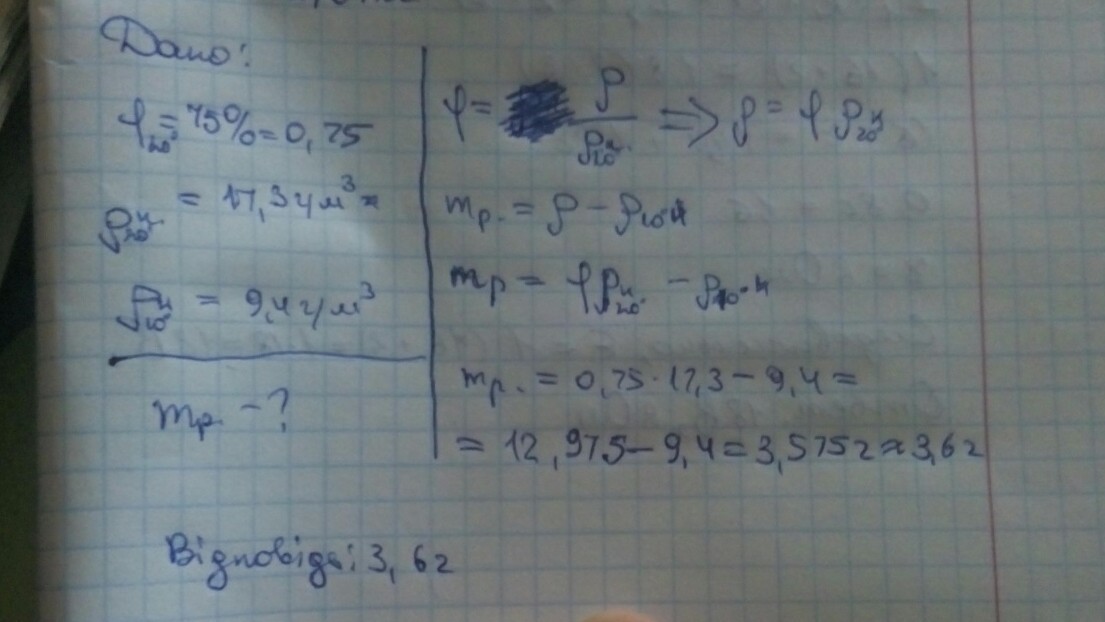 Дано:
φ₂₀° = 75% = 0,75
ρ₂₀ᴴ = 17,3 г/м³
ρ₁₀ᴴ = 9,4 г/м³
mр. - ?
φ = ρ / ρ₂₀ᴴ. => ρ = φ ρ₂₀ᴴ
mр. = ρ - ρ₁₀.ᴴ
mр = φρ₂₀ᴴ. - ρ₁₀.ᴴ
mр. = 0,75·17,3 - 9,4 =
= 12,975 - 9,4 = 3,575г ≈ 3,6г
Відповідь: 3,6г